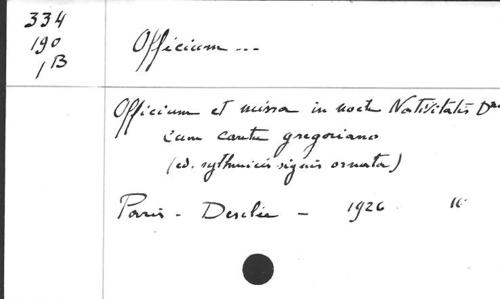 334
190
1B
Officium ...
Officium et missa in nocte Nativitatis Dni
Cum cantu gregoriano
(ed. rythmicis signis ornata)
Paris - Desclée - 1926 16